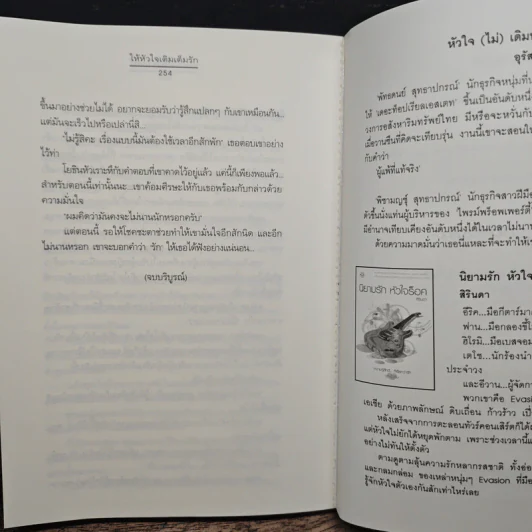 ให้หัวใจเติมเต็มรัก
254
ขึ้นมาอย่างช่วยไม่ได้ อยากจะยอมรับว่ารู้สึกแปลกๆ กับเขาเหมือนกัน...
แต่มันจะเร็วไปหรือเปล่านี่สิ...
'ไม่รู้สิคะ เรื่องแบบนี้มันต้องใช้เวลาอีกสักพัก' เธอตอบเขาอย่าง
ไว้ท่า
โยธินหัวเราะที่กับคำตอบที่เขาคาดไว้อยู่แล้ว แค่นี้ก็เพียงพอแล้ว...
สำหรับตอนนี้เท่านั้นนะ...เขาค้อมศีรษะให้กับเธอพร้อมกับกล่าวด้วย
ความมั่นใจ
'ผมคิดว่ามันคงจะไม่นานนักหรอกครับ'
แต่ตอนนี้ รอให้โชคชะตาช่วยทำให้เขามั่นใจอีกสักนิด และอีก
ไม่นานหรอก เขาจะบอกคำว่า 'รัก' ให้เธอได้ฟังอย่างแน่นอน...
(จบบริบูรณ์)
หัวใจ (ไม่) เติม
อุรัส
พัทธดนย์ สุทธาปกรณ์ นักธุรกิจหนุ่มที่
ให้ 'เดอะท็อปเรียลเอสเตท' ขึ้นเป็นอันดับหนึ่ง
วงการอสังหาริมทรัพย์ไทย มีหรือจะหวั่นกับ
เมื่อวานซืนที่คิดจะเทียบรุ่น งานนี้เขาจะสอนให้
กับคำว่า
'ผู้แพ้ที่แท้จริง'
พิชามญชุ์ สุทธาปกรณ์ นักธุรกิจสาวฝีมือ
ตัวขึ้นนั่งแท่นผู้บริหารของ 'ไพรม์พร็อพเพอร์ตี้
มีอำนาจเทียบเคียงอันดับหนึ่งได้ในเวลาไม่นาน
ด้วยความมาดมั่นว่าเธอนี่แหละที่จะทำให้
นิยามรัก หัวใจ
สิรินดา
นิยามรัก หัวใจร็อค
อีริค...มือกีตาร์
ฟาน...มือกลอง
ฮิโรมิ...มือเบส
เดโช...นักร้องนำ
ประจำวง
และอีวาน...ผู้จัดการ
พวกเขาคือ Evasion
เอเชีย ด้วยภาพลักษณ์ ดิบเถื่อน ก้าวร้าว
หลังเสร็จจากการตะลอนทัวร์คอนเสิร์ตก็ได้
แต่หัวใจไม่ยักได้หยุดพักตาม เพราะช่วงเวลานี้
อย่างไม่ทันให้ตั้งตัว
ตามดูตามลุ้นความรักหลากรสชาติ ทั้ง
และกลมกล่อม ของเหล่าหนุ่มๆ Evasion ที่
รู้จักหัวใจตัวเองกันสักเท่าไหร่เลย